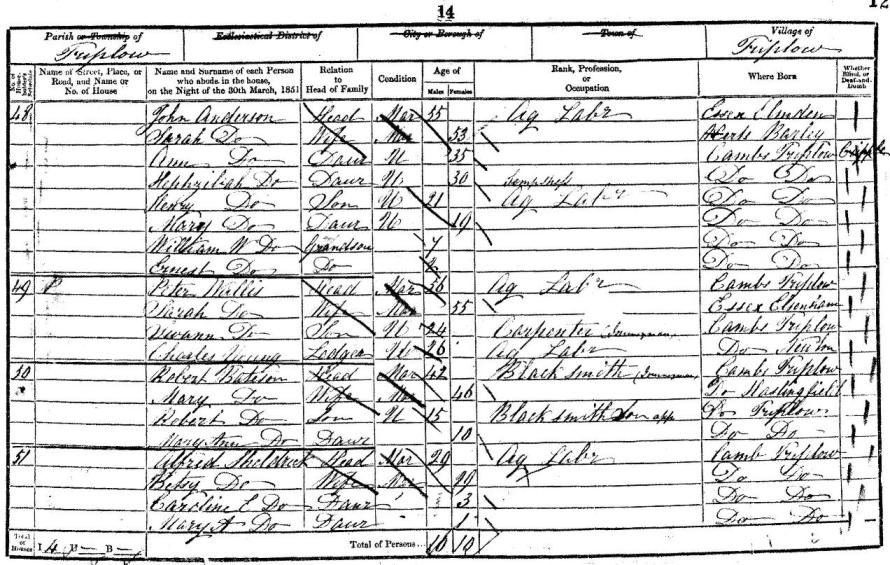 14
12
Parish or Township of Ecclesiastical District of City or Borough of Town of Village of
Triplow Triplow
No. of House-holder's Schedule Name of Street, Place, or Road, and Name or No. of House Name and Surname of each Person who abode in the house, on the Night of the 30th March, 1851 Relation to Head of Family Condition Age of Males Females Rank, Profession, or Occupation Where Born Whether Blind, or Deaf-and-Dumb
48 John Anderson Head Mar 55 Ag Labr Essex Elmden
Sarah Do Wife Mar 53 Herts Barley
Ann Do Daur U 35 Cambs Triplow Cripple
Hephzibah Do Daur U 30 Do Do
Henry Do Son U 21 Ag Labr Do Do
Mary Do Daur U 19 Do Do
William W Do Grandson 7 Do Do
Ernest Do Do Do Do
49 Peter Willis Head Mar 56 Ag Labr Cambs Triplow
Sarah Do Wife Mar 55 Essex
Do Son U 24 Carpenter Cambs Triplow
Charles Young Lodger U 26 Ag Labr Do Newton
50 Robert Bateson Head Mar 42 Blacksmith Cambs Triplow
Mary Do Wife Mar 46 Do Haslingfield
Robert Do Son U 15 Blacksmith Son app Do Triplow
Mary Ann Do Daur 10 Do Do
51 Alfred Sheldrick Head Mar 29 Ag Labr Camb Triplow
Betsy Do Wife Mar 29 Do Do
Caroline E Do Daur 3 Do Do
Mary A Do Daur 1 Do Do
Total of Houses I 4 U— B— Total of Persons... 10 10